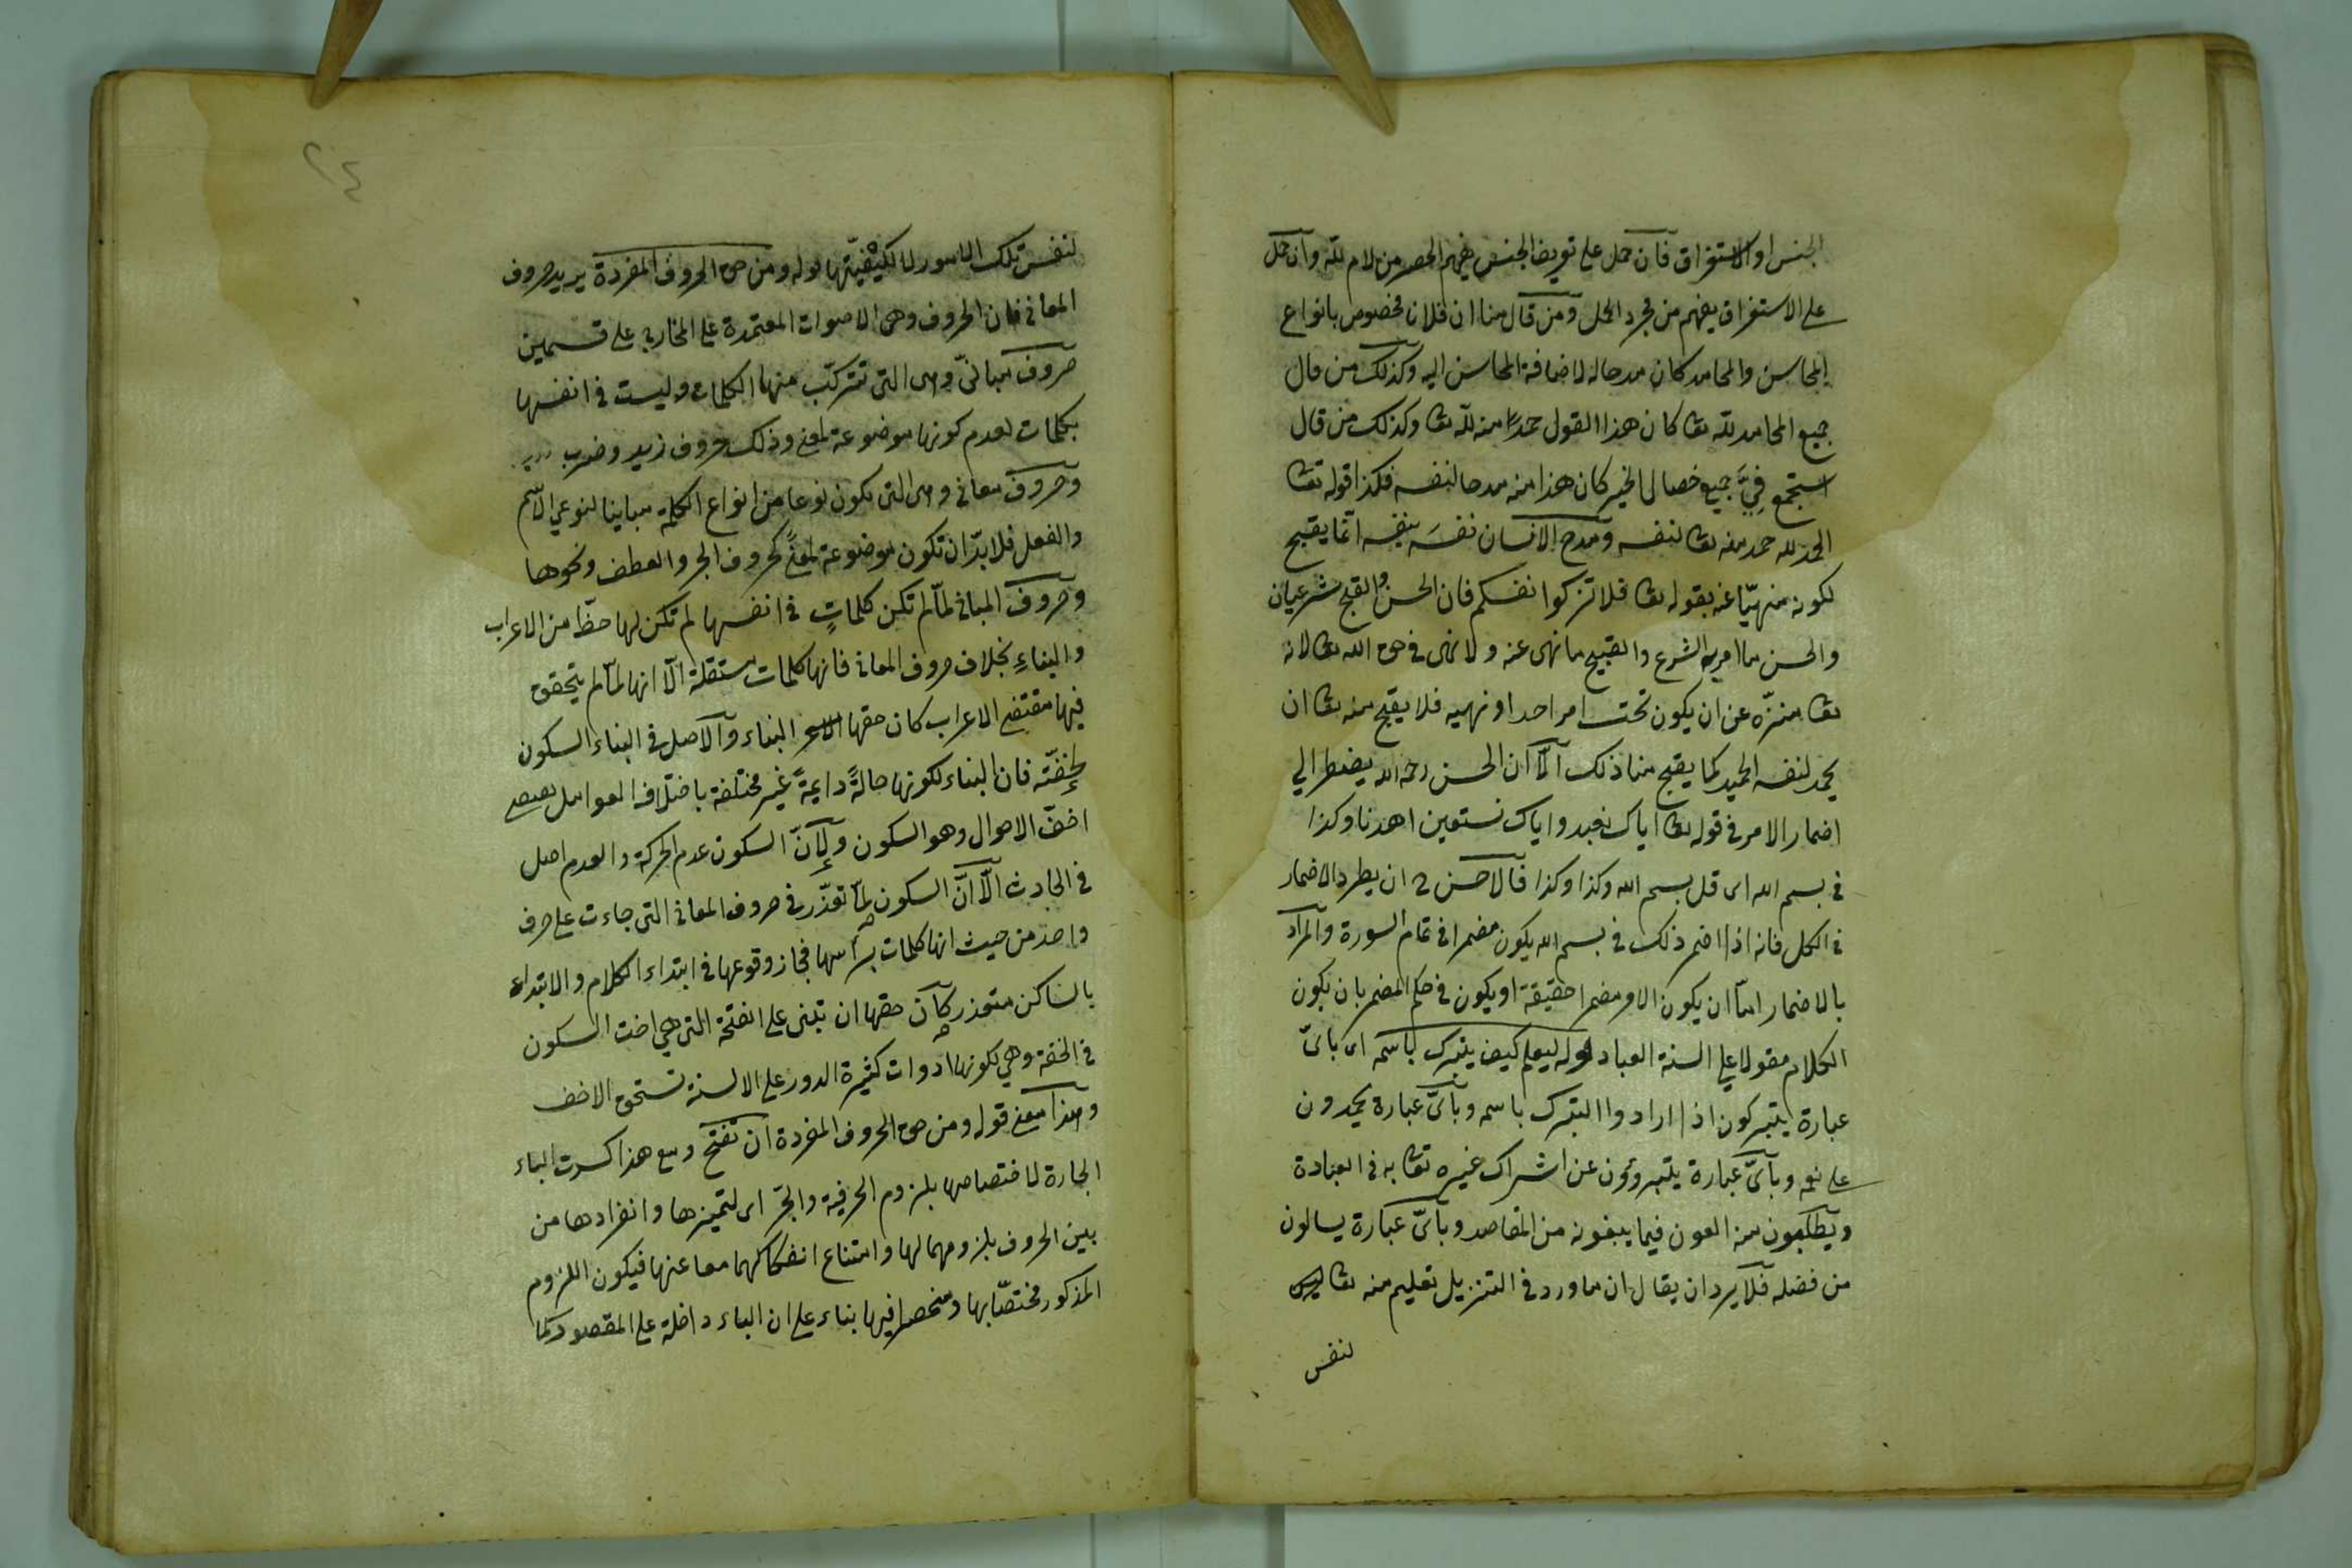 الجنس او الاستغراق فان حمل على تعريف الجنس يفهم الحصر من لام لله وان حمل
على الاستغراق يفهم من مجرد الحمل ومن قال منا ان فلانا مخصوص بانواع
المحاسن والمحامد كان مدحا له لاضافة المحاسن اليه وكذلك من قال
جميع المحامد لله تعا كان هذا القول حمدا منه لله تعا وكذلك من قال
استجمع فيَّ جميع خصال الخير كان هذا منه مدحا لنفسه فكذا قوله تعا
الحمد لله حمد منه تعا لنفسه ومدح الانسان نفسَه بنفسه انما يقبح
لكونه منهيّا عنه بقوله تعا فلا تزكوا انفسكم فان الحسن والقبح شرعيان
والحسن ما امر به الشرع والقبيح ما نهى عنه ولا نهى في حق الله تعا لانه
تعا منزّه عن ان يكون تحت امر احد او نهيه فلا يقبح منه تعا ان
يحمد لنفسه الحميد كما يقبح منا ذلك الّا ان الحسن رحمه الله يضطر الي
اضمار الامر في قوله تعا اياك نعبد واياك نستعين اهدنا وكذا
في بسم الله اى قل بسم الله وكذا وكذا فالاحسن ح ان يطرد الاضمار
في الكل فانه اذا اضمر ذلك في بسم الله يكون مضمرا في تمام السورة والمراد
بالاضمار امّا ان يكون الامر مضمرا حقيقة او يكون في حكم المضمر بان يكون
الكلام مقولا على السنة العباد قوله ليعلم كيف يتبرك باسمه اى باىّ
عبارة يتبركون اذا ارادوا التبرك باسمه وباىّ عبارة يحمدون
على نعمه وباىّ عبارة يتبرؤون عن اشراك غيره تعا به في العبادة
ويطلبون منه العون فيما يبغونه من المقاصد وباىّ عبارة يسالون
من فضله فلا يرد ان يقال ان ما ورد في التنزيل تعليم منه تعا ليس
لنفس
٢٤
لنفس تلك الامور لا لكيفيّتها قوله ومن حق الحروف المفردة يريد حروف
المعاني فان الحروف وهى الاصوات المعتمدة على المخارج على قسمين
حروف مبانيّ وهى التي تتركّب منها الكلمات وليست في انفسها
بكلمات لعدم كونها موضوعة لمعنى وذلك حروف زيد وضرب
وحروف معاني وهى التي تكون نوعا من انواع الكلمة مباينا لنوعي الاسم
والفعل فلا بدّ ان تكون موضوعة لمعنىً كحروف الجر والعطف ونحوها
وحروف المباني لمّا لم تكن كلماتٍ في انفسها لم تكن لها حظّا من الاعراب
والبناءِ بخلاف حروف المعاني فانها كلمات مستقلة الّا انها لمّا لم يتحقق
فيها مقتضى الاعراب كان حقها البناء والاصل في البناء السكون
لخفّته فان البناء لكونها حالةً دايمةً غير مختلفة باختلاف العوامل
اخفّ الاحوال وهو السكون ولانّ السكون عدم الحركة والعدم اصل
في الحادث الّا انّ السكون لمّا تعذّر في حروف المعاني التي جاءت على حرف
واحد من حيث انها كلمات برأسها فجاز وقوعها في ابتداء الكلام والابتداء
بالساكن متعذر كان حقها ان تبنى على الفتحة التي هي اخت السكون
في الخفة وهي لكونها ادوات كثيرة الدور على الالسنة تستحق الاخف
وهذا معنى قوله ومن حق الحروف المفردة ان تفتح ومع هذا كسرت الباء
الجارة لاختصاصها بلزوم الحرفية والجرّ اى لتميزها وانفرادها من
بين الحروف بلزومهما لها وامتناع انفكاكهما معا عنها فيكون اللزوم
المذكور مختصّا بها ومنحصرا فيها بناء على ان الباء داخلة على المقصور كما